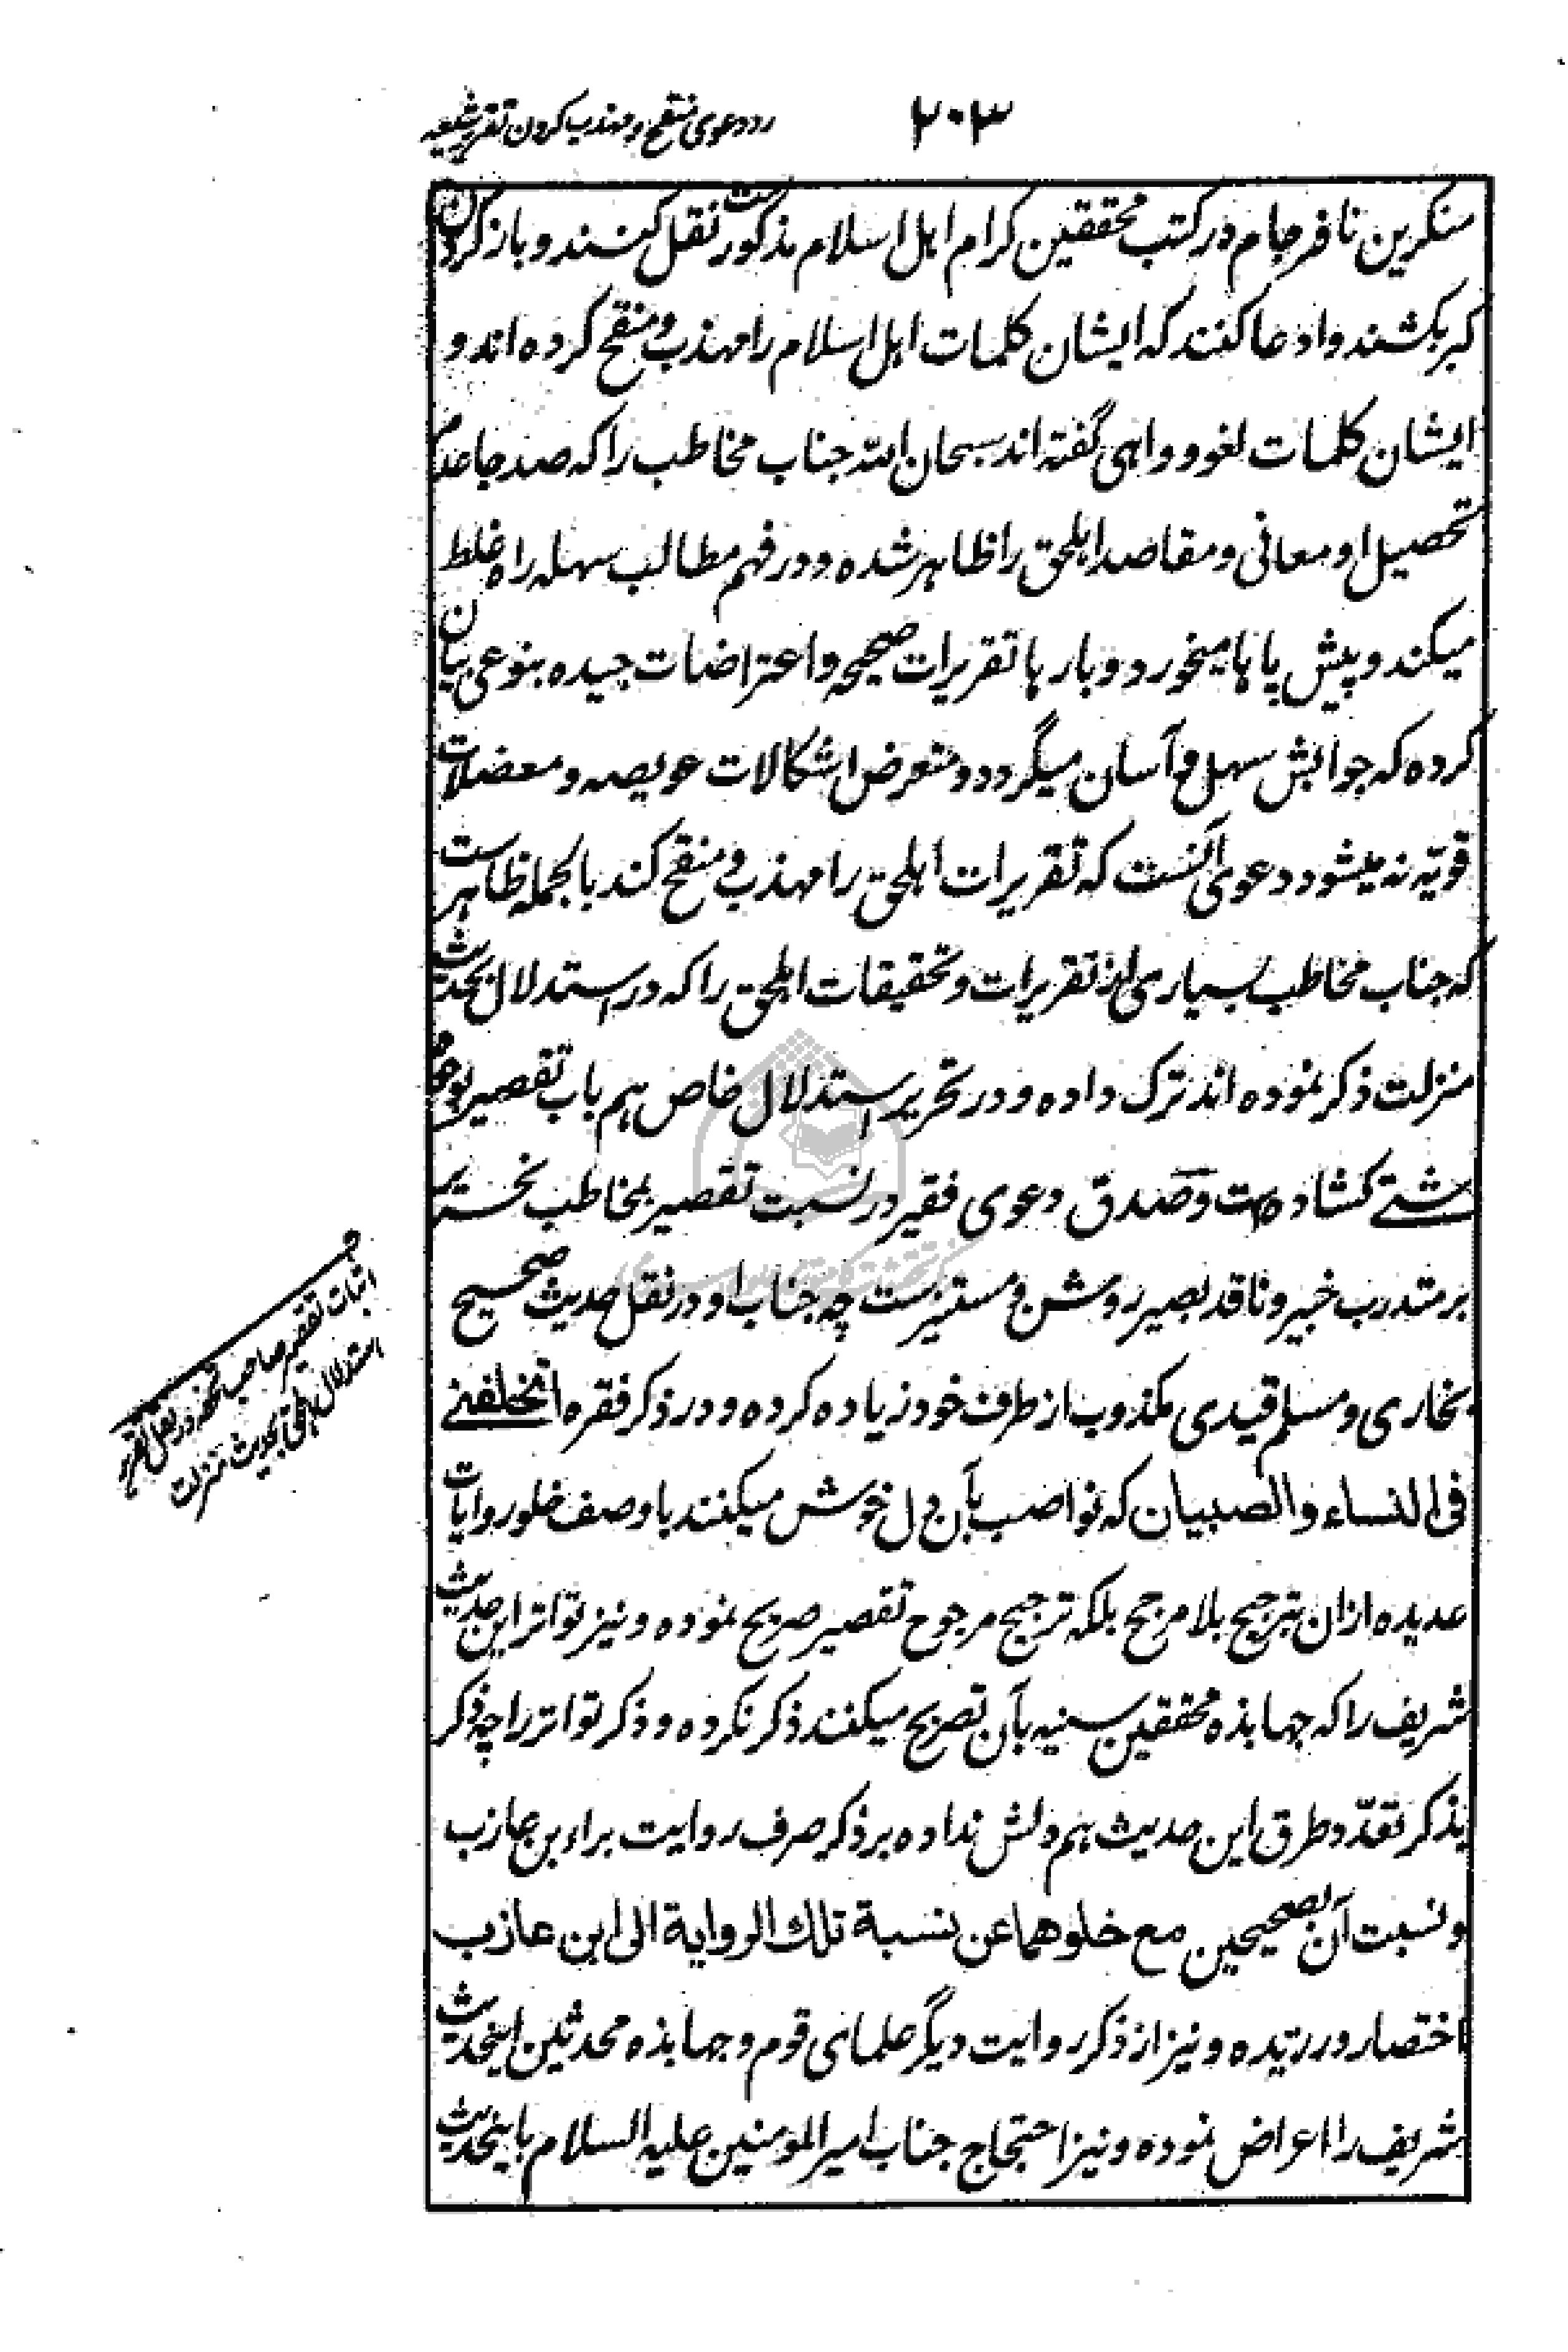 ۲۰۳
رد دعوی منقح و مهذب کردن تقریر شیعه
منکرین نافرجام در کتب محققین کرام اهل اسلام مذکورست نقل کنند و باز گردن
کبر بکشند و ادعا کنند که ایشان کلمات اهل اسلام را مهذب و منقح کرده اند و
ایشان کلمات لغو و واهی گفته اند سبحان الله جناب مخاطب را که صد جا عدم
تحصیل او معانی و مقاصد اهلحق را ظاهر شده و در فهم مطالب سهله راه غلط
میکند و پیش پاها میخورد و بارها تقریرات صحیحه و اعتراضات جیده بنوعی بیان
کرده که جوابش سهل و آسان میگردد و متعرض اشکالات عویصه و معضلات
قویّه نه میشود دعوی آنست که تقریرات اهلحق را مهذب و منقح کند بالجمله ظاهرست
که جناب مخاطب بسیاری از تقریرات و تحقیقات اهلحق را که در استدلال بحدیث
منزلت ذکر نموده اند ترک داده و در تحریر استدلال خاص هم باب تقصیر بوجوه
شتے کشاده است و صدق دعوی فقیر در نسبت تقصیر بمخاطب نحریر
بر متدرب خبیر و ناقد بصیر روشن و مستنیرست چه جناب او در نقل حدیث صحیح
بخاری و مسلم قیدی مکذوب از طرف خود زیاده کرده و در ذکر فقره اتخلفنے
فی النساء و الصبیان که نواصب بآن دل خوش میکنند با وصف خلور روایات
عدیده ازان بترجیح بلا مرجح بلکه ترجیح مرجوح تقصیر صریح نموده و نیز تواتر این حدیث
شریف را که جهابذه محققین سنیه بآن تصریح میکنند ذکر نکرده و ذکر تواتر را چه ذکر
بذکر تعدّد طرق این حدیث هم دلش نداده بر ذکر صرف روایت براء بن عازب
و نسبت آن بصحیحین مع خلوهما عن نسبة تلك الروایة الی ابن عازب
اختصار ورزیده و نیز از ذکر روایت دیگر علمای قوم و جهابذه محدثین اینحدیث
شریف را اعراض نموده و نیز احتجاج جناب امیر المؤمنین علیه السلام باینحدیث
اثبات تقصیر صاحب تحفه در نقل تقریر
استدلال اهلحق بحدیث منزلت